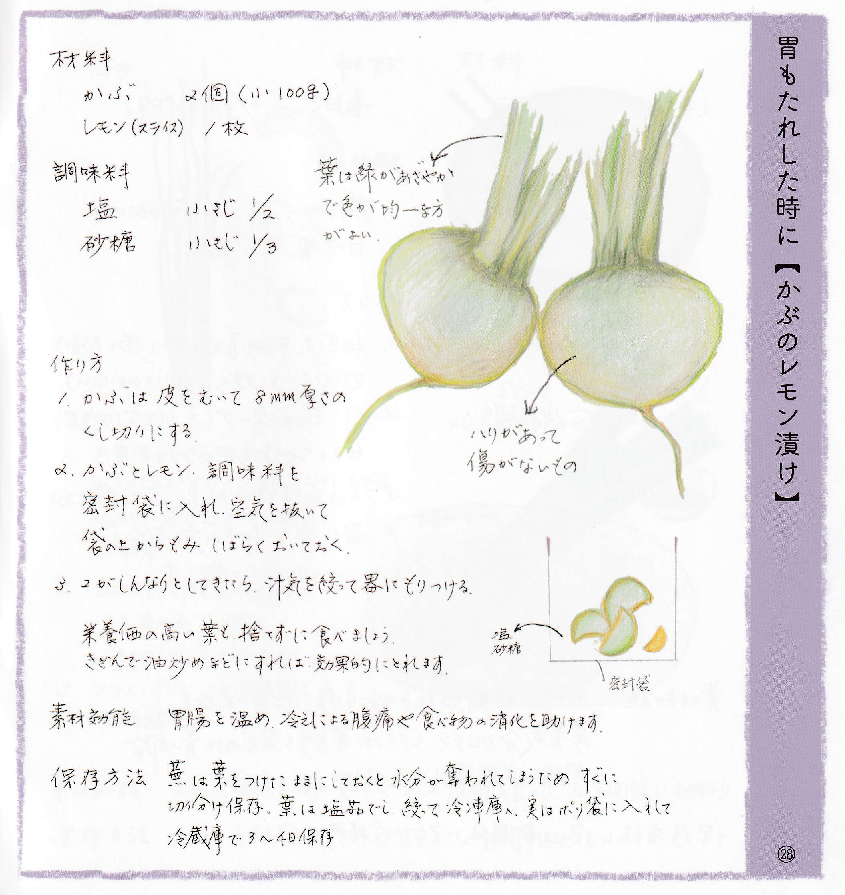 胃もたれした時に【かぶのレモン漬け】
材料
かぶ 2個(小100g)
レモン(スライス) 1枚
調味料
塩 小さじ 1/2
砂糖 小さじ 1/3
葉は緑があざやか
で色が均一な方
がよい。
ハリがあって
傷がないもの
作り方
1. かぶは皮をむいて8mm厚さの
くし切りにする。
2. かぶとレモン、調味料を
密封袋に入れ、空気を抜いて
袋の上からもみ しばらくおいておく。
3. 2がしんなりとしてきたら、汁気を絞って器にもりつける。
塩
砂糖
密封袋
栄養価の高い葉も 捨てずに食べましょう。
きざんで油炒めなどにすれば 効果的にとれます。
素材効能 胃腸を温め、冷えによる腹痛や食べ物の消化を助けます。
保存方法 蕪は葉をつけたままにしておくと水分が奪われてしまうため すぐに
切り分け保存。葉は塩茹でし 絞って冷凍庫へ、実はポリ袋に入れて
冷蔵庫で3〜4日保存
28